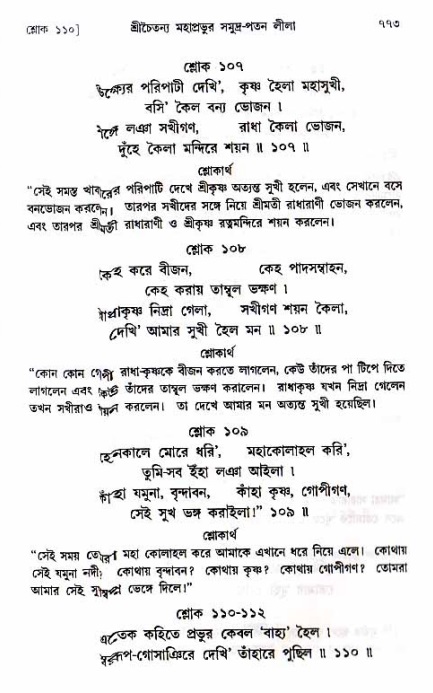 শ্লোক ১১০]
শ্রীচৈতন্য মহাপ্রভুর সমুদ্র-পতন লীলা
৭৭৩
শ্লোক ১০৭
ভক্ষ্যের পরিপাটী দেখি', কৃষ্ণ হৈলা মহাসুখী,
বসি' কৈল বন্য ভোজন ।
সঙ্গে লঞা সখীগণ, রাধা কৈলা ভোজন,
দুঁহে কৈলা মন্দিরে শয়ন ॥ ১০৭ ॥
শ্লোকার্থ
“সেই সমস্ত খাবারের পরিপাটি দেখে শ্রীকৃষ্ণ অত্যন্ত সুখী হলেন, এবং সেখানে বসে
বনভোজন করলেন। তারপর সখীদের সঙ্গে নিয়ে শ্রীমতী রাধারাণী ভোজন করলেন,
এবং তারপর শ্রীমতী রাধারাণী ও শ্রীকৃষ্ণ রত্নমন্দিরে শয়ন করলেন।
শ্লোক ১০৮
কেহ করে বীজন, কেহ পাদসম্বাহন,
কেহ করায় তাম্বূল ভক্ষণ ।
রাধাকৃষ্ণ নিদ্রা গেলা, সখীগণ শয়ন কৈলা,
দেখি' আমার সুখী হৈল মন ॥ ১০৮ ॥
শ্লোকার্থ
“কোন কোন গোপী রাধা-কৃষ্ণকে বীজন করতে লাগলেন, কেউ তাঁদের পা টিপে দিতে
লাগলেন এবং কেউ তাঁদের তাম্বূল ভক্ষণ করালেন। রাধাকৃষ্ণ যখন নিদ্রা গেলেন
তখন সখীরাও শয়ন করলেন। তা দেখে আমার মন অত্যন্ত সুখী হয়েছিল।
শ্লোক ১০৯
হেনকালে মোরে ধরি', মহাকোলাহল করি',
তুমি-সব ইঁহা লঞা আইলা ।
কাঁহা যমুনা, বৃন্দাবন, কাঁহা কৃষ্ণ, গোপীগণ,
সেই সুখ ভঙ্গ করাইলা!” ১০৯ ॥
শ্লোকার্থ
“সেই সময় তোমরা মহা কোলাহল করে আমাকে এখানে ধরে নিয়ে এলে। কোথায়
সেই যমুনা নদী; কোথায় বৃন্দাবন? কোথায় কৃষ্ণ? কোথায় গোপীগণ? তোমরা
আমার সেই সুখস্বপ্ন ভেঙ্গে দিলে।”
শ্লোক ১১০-১১২
এতেক কহিতে প্রভুর কেবল 'বাহ্য' হৈল ।
স্বরূপ-গোসাঞিরে দেখি' তাঁহারে পুছিল ॥ ১১০ ॥